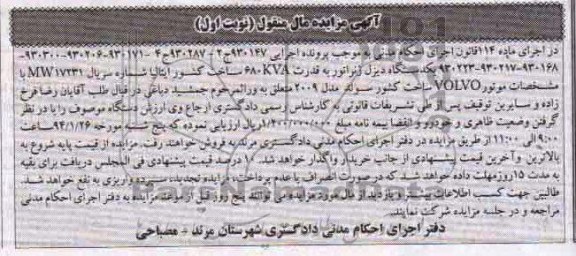 آگهی مزایده مال منقول (نوبت اول)
در اجرای ماده ۱۱۴قانون اجرای احکام مدنی به موجب پرونده اجرایی ۹۳۰۱۴۷ج۲ - ۹۳۰۲۸۷ج۴ -۹۳۰۱۷۱-۹۳۰۲۰۶-۹۳۰۳۰۰-
۹۳۰۱۶۸-۹۳۰۲۱۷-۹۳۰۲۲۳ یکدستگاه دیزل ژنراتور به قدرت ۶۸۰KVA ساخت کشور ایتالیا شماره سریال MW۱۷۲۳۱ با
مشخصات موتور VOLVO ساخت کشور سوئد مدل ۲۰۰۹ متعلق به وراث مرحوم جمشید دباغی در قبال طلب آقایان رضا فرخ
زاده و سایرین توقیف پس از طی تشریفات قانونی به کارشناس رسمی دادگستری ارجاع وی ارزش دستگاه موصوف را با در نظر
گرفتن وضعیت ظاهری و خودرو و اقتضا بیمه نامه مبلغ ۱/۴۰۰/۰۰۰/۰۰۰ریال ارزیابی نموده که پنج شنبه مورخه ۹۴/۱/۲۶ساعت
۹:۰۰الی ۱۱:۰۰ از طریق مزایده در دفتر اجرای احکام مدنی دادگستری مرند به فروش خواهند رفت. مزایده از قیمت پایه شروع به
بالاترین و آخرین قیمت پیشنهادی از جانب خریدار واگذار خواهد شد. ۱۰ درصد قیمت پیشنهادی فی المجلس دریافت برای بقیه
به مدت ۱۵روزمهلت داده خواهد شد که در صورت انصراف یا عدم پرداخت، مزایده تجدید، سپرده واریزی به نفع خواهد شد.
طالبین جهت کسب اطلاعات بیشتر و بازدید از مال مورد مزایده می توانند پنج روز قبل از موعد مزایده به دفتر اجرای احکام مدنی
مراجعه و در جلسه مزایده شرکت نمایند.
دفتر اجرای احکام مدنی دادگستری شهرستان مرند - مصباحی